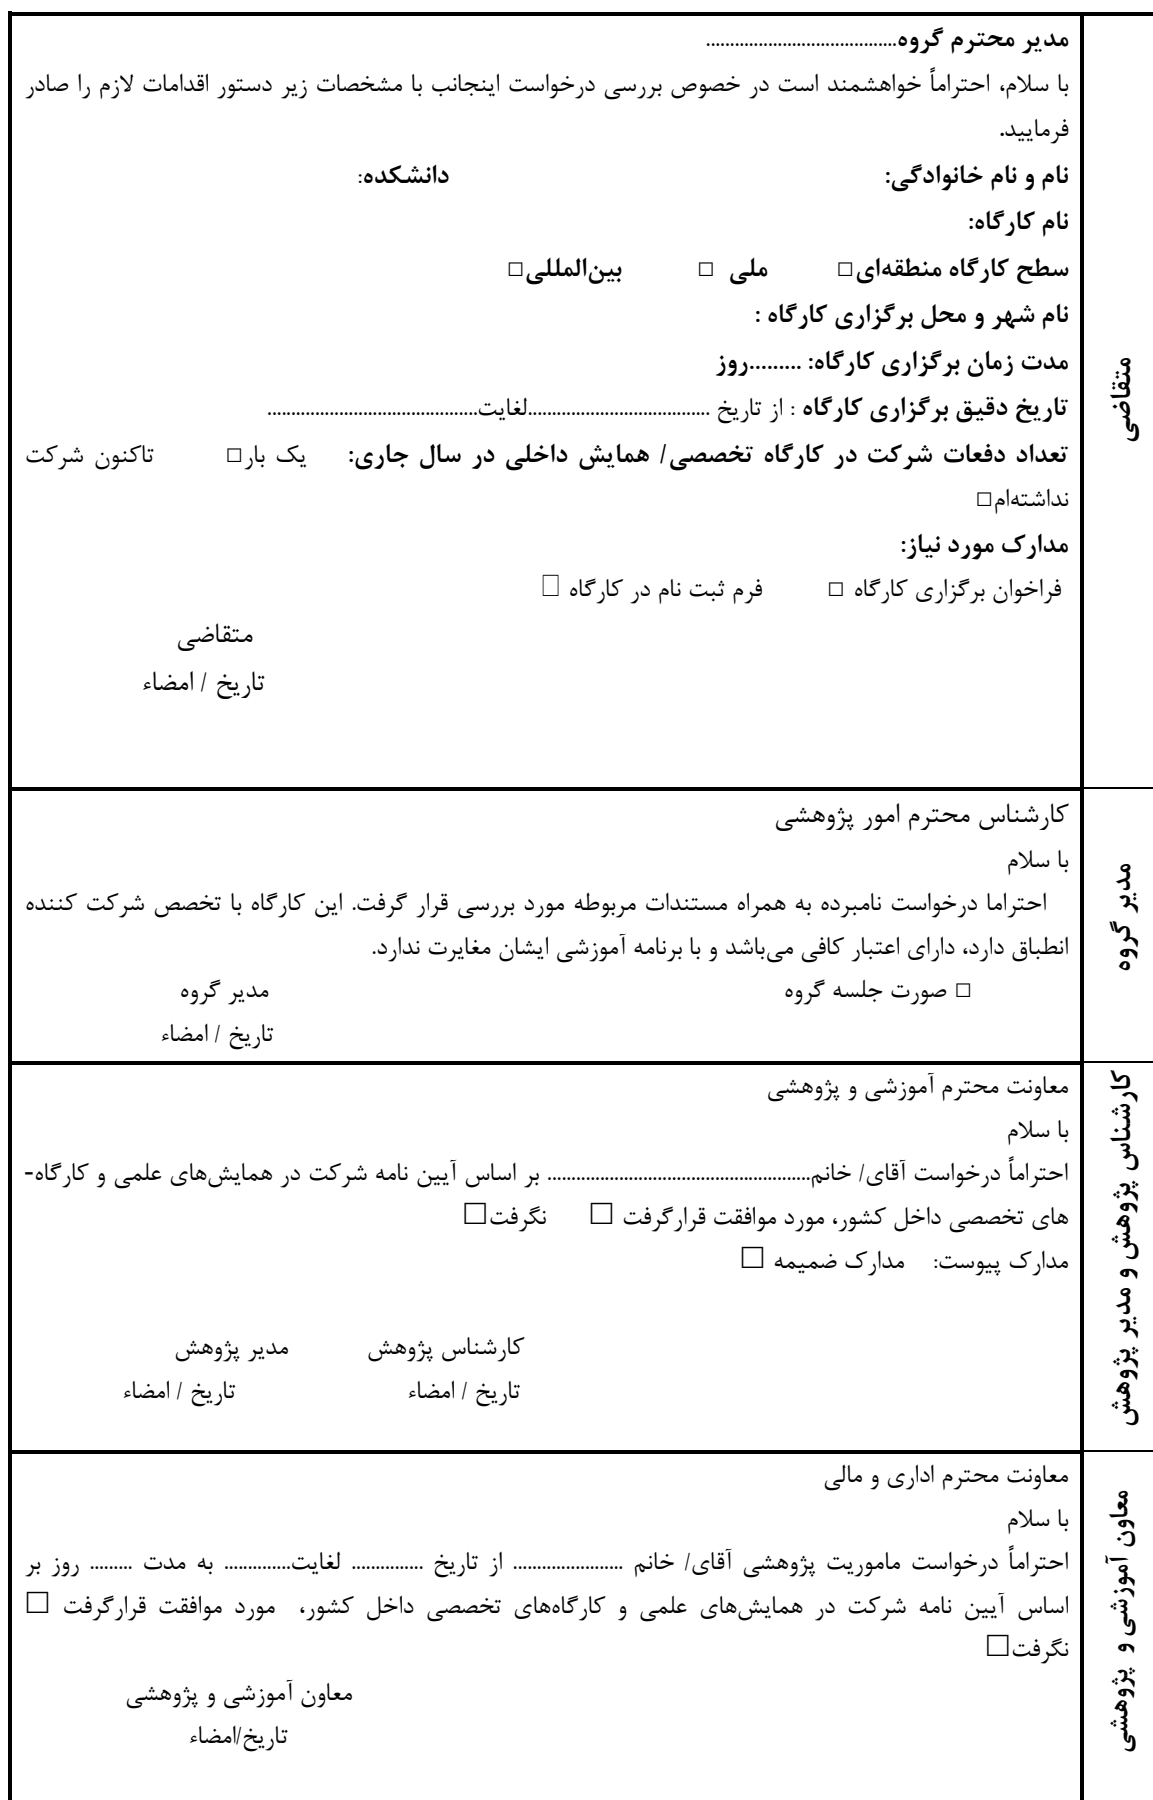 متقاضی
مدیر محترم گروه........................................
با سلام، احتراماً خواهشمند است در خصوص بررسی درخواست اینجانب با مشخصات زیر دستور اقدامات لازم را صادر
فرمایید.
نام و نام خانوادگی: دانشکده:
نام کارگاه:
سطح کارگاه منطقه‌ای□ ملی □ بین‌المللی□
نام شهر و محل برگزاری کارگاه :
مدت زمان برگزاری کارگاه: .........روز
تاریخ دقیق برگزاری کارگاه : از تاریخ ......................................لغایت............................................
تعداد دفعات شرکت در کارگاه تخصصی/ همایش داخلی در سال جاری: یک بار□ تاکنون شرکت
نداشته‌ام□
مدارک مورد نیاز:
فراخوان برگزاری کارگاه □ فرم ثبت نام در کارگاه □
متقاضی
تاریخ / امضاء
مدیر گروه
کارشناس محترم امور پژوهشی
با سلام
احتراما درخواست نامبرده به همراه مستندات مربوطه مورد بررسی قرار گرفت. این کارگاه با تخصص شرکت کننده
انطباق دارد، دارای اعتبار کافی می‌باشد و با برنامه آموزشی ایشان مغایرت ندارد.
□ صورت جلسه گروه مدیر گروه
تاریخ / امضاء
کارشناس پژوهش و مدیر پژوهش
معاونت محترم آموزشی و پژوهشی
با سلام
احتراماً درخواست آقای/ خانم....................................................... بر اساس آیین نامه شرکت در همایش‌های علمی و کارگاه-
های تخصصی داخل کشور، مورد موافقت قرارگرفت □ نگرفت□
مدارک پیوست: مدارک ضمیمه □
کارشناس پژوهش مدیر پژوهش
تاریخ / امضاء تاریخ / امضاء
معاون آموزشی و پژوهشی
معاونت محترم اداری و مالی
با سلام
احتراماً درخواست ماموریت پژوهشی آقای/ خانم ....................... از تاریخ ............... لغایت.............. به مدت ......... روز بر
اساس آیین نامه شرکت در همایش‌های علمی و کارگاه‌های تخصصی داخل کشور، مورد موافقت قرارگرفت □
نگرفت□
معاون آموزشی و پژوهشی
تاریخ/امضاء